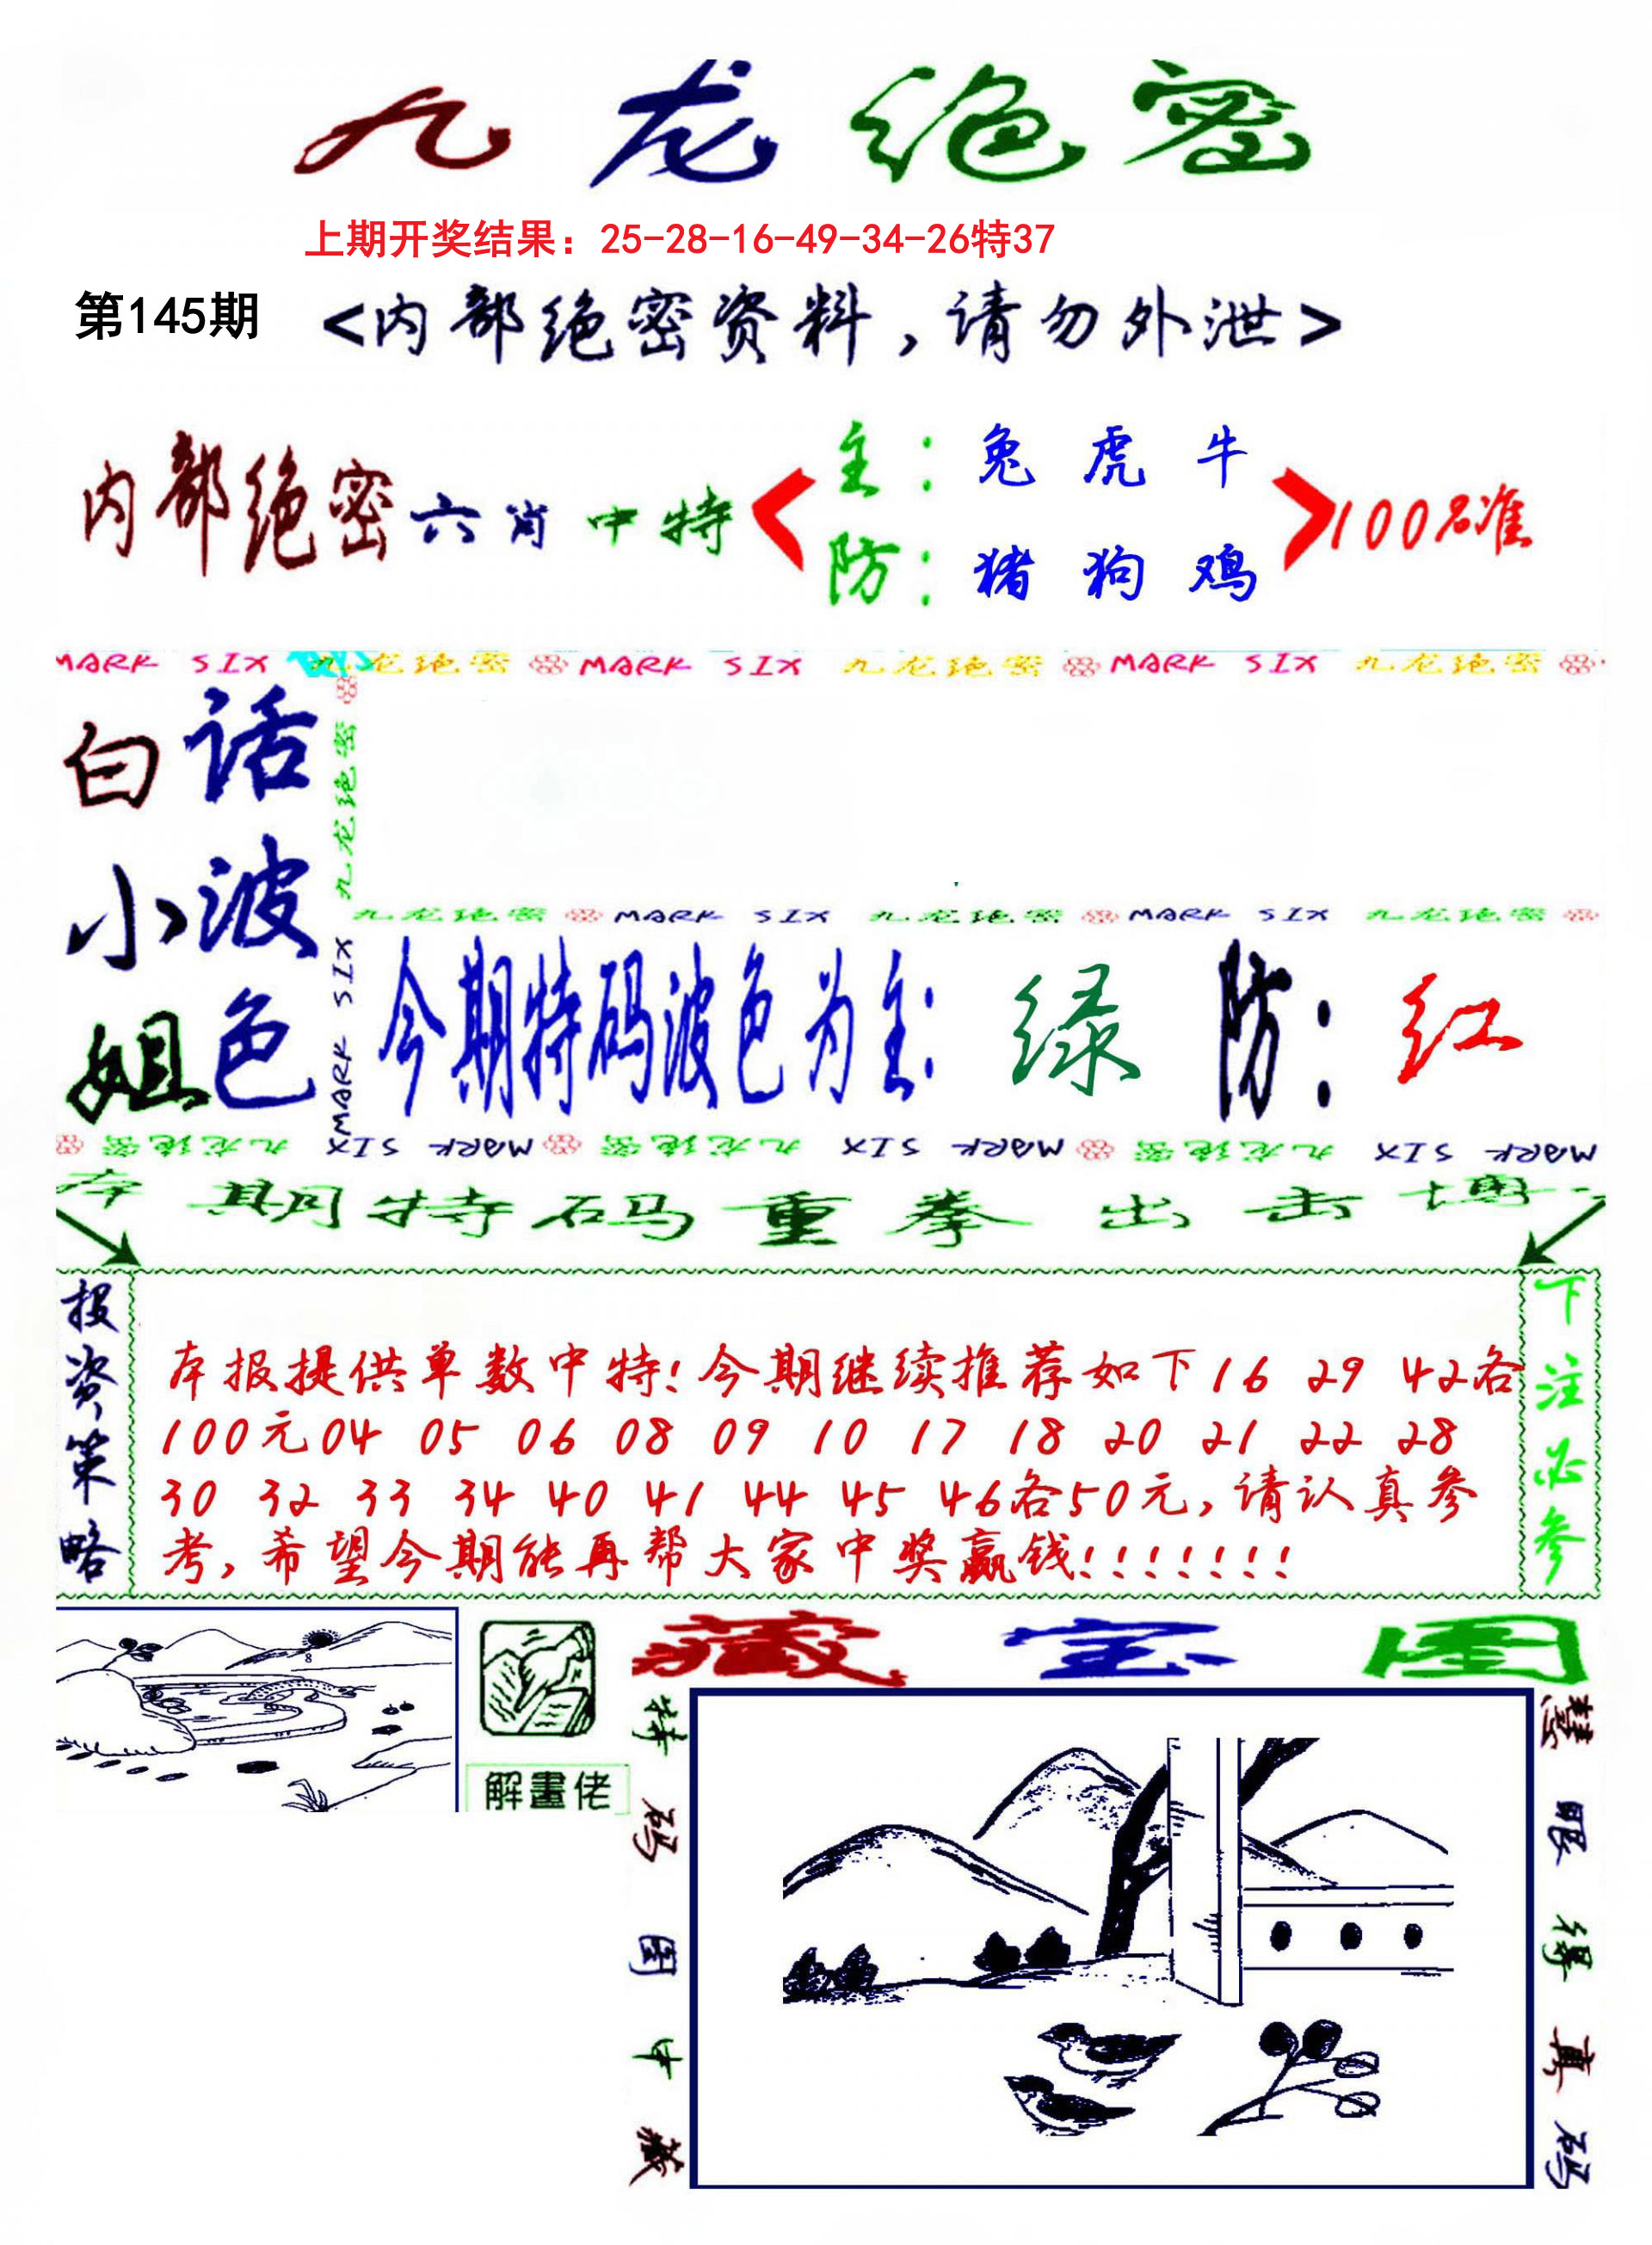 九龙绝密
上期开奖结果：25-28-16-49-34-26特37
第145期
<内部绝密资料，请勿外泄>
内部绝密六肖中特
主：兔 虎 牛
防：猪 狗 鸡
100%准
MARK SIX 九龙绝密 MARK SIX 九龙绝密 MARK SIX 九龙绝密
白小姐
话波色
九龙绝密
MARK SIX
九龙绝密 MARK SIX 九龙绝密 MARK SIX 九龙绝密
今期特码波色为主：绿 防：红
九龙绝密 MARK SIX 九龙绝密 MARK SIX 九龙绝密 MARK SIX
本期特码重拳出击博
投资策略
本报提供单数中特!今期继续推荐如下16 29 42各
100元04 05 06 08 09 10 17 18 20 21 22 28
30 32 33 34 40 41 44 45 46各50元,请认真参
考,希望今期能再帮大家中奖赢钱!!!!!!!
下注必参
解畫佬
藏宝图
特码图中藏
慧眼得真码